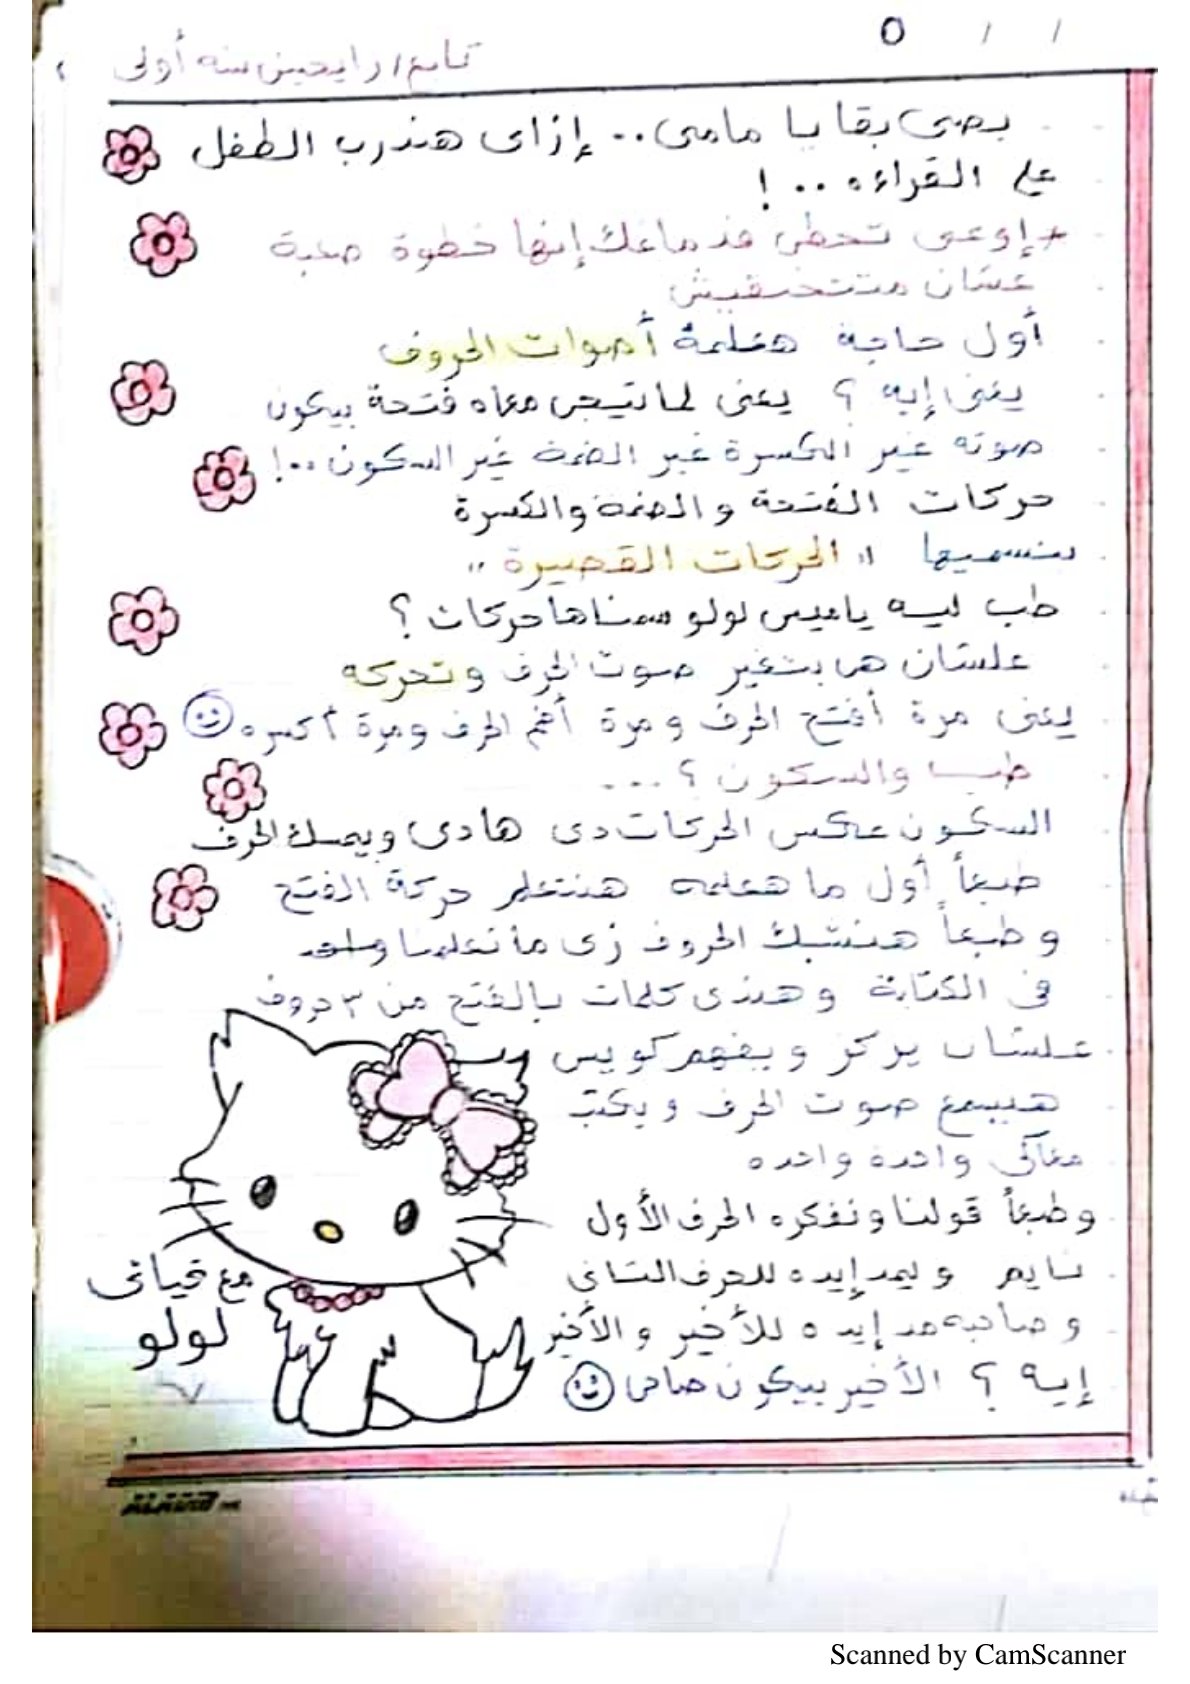 ٥ / /
تابع / رايحين سنه أولى
بصى بقا يا مامى .. إزاى هندرب الطفل
على القراءه .. !
* إوعى تحطى فى دماغك إنها خطوة صعبة
عشان متتخنقيش
أول حاجة هعلمة أصوات الحروف
يعنى إيه ؟ يعنى لما تيجى معاه فتحة بيكون
صوته غير الكسرة غير الضمة غير السكون ..!
حركات الفتحة والضمة والكسرة
بنسميها " الحركات القصيرة "
طب ليه ياميس لولو سمناها حركات ؟
علشان هى بتغير صوت الحرف وتحركه
يعنى مرة أفتح الحرف ومرة أضم الحرف ومرة أكسره
طب والسكون ؟ ...
السكون عكس الحركات دى هادى ويمسك الحرف
طبعاً أول ما هعلمه هنتعلم حركة الفتح
وطبعاً هنشبك الحروف زى ما تعلمنا
فى الكتابة وهندى كلمات بالفتح من ٣ حروف
علشان يركز ويفهم كويس
هيسمع صوت الحرف ويكتب
معاكى واحدة واحده
وطبعاً قولنا ونفكره الحرف الأول
نايم وليمد إيده للحرف التانى
وصاحبه مد إيده للأخير والأخير
إيه ؟ الأخير بيكون صاحى
مع تحياتى
لولو
Scanned by CamScanner